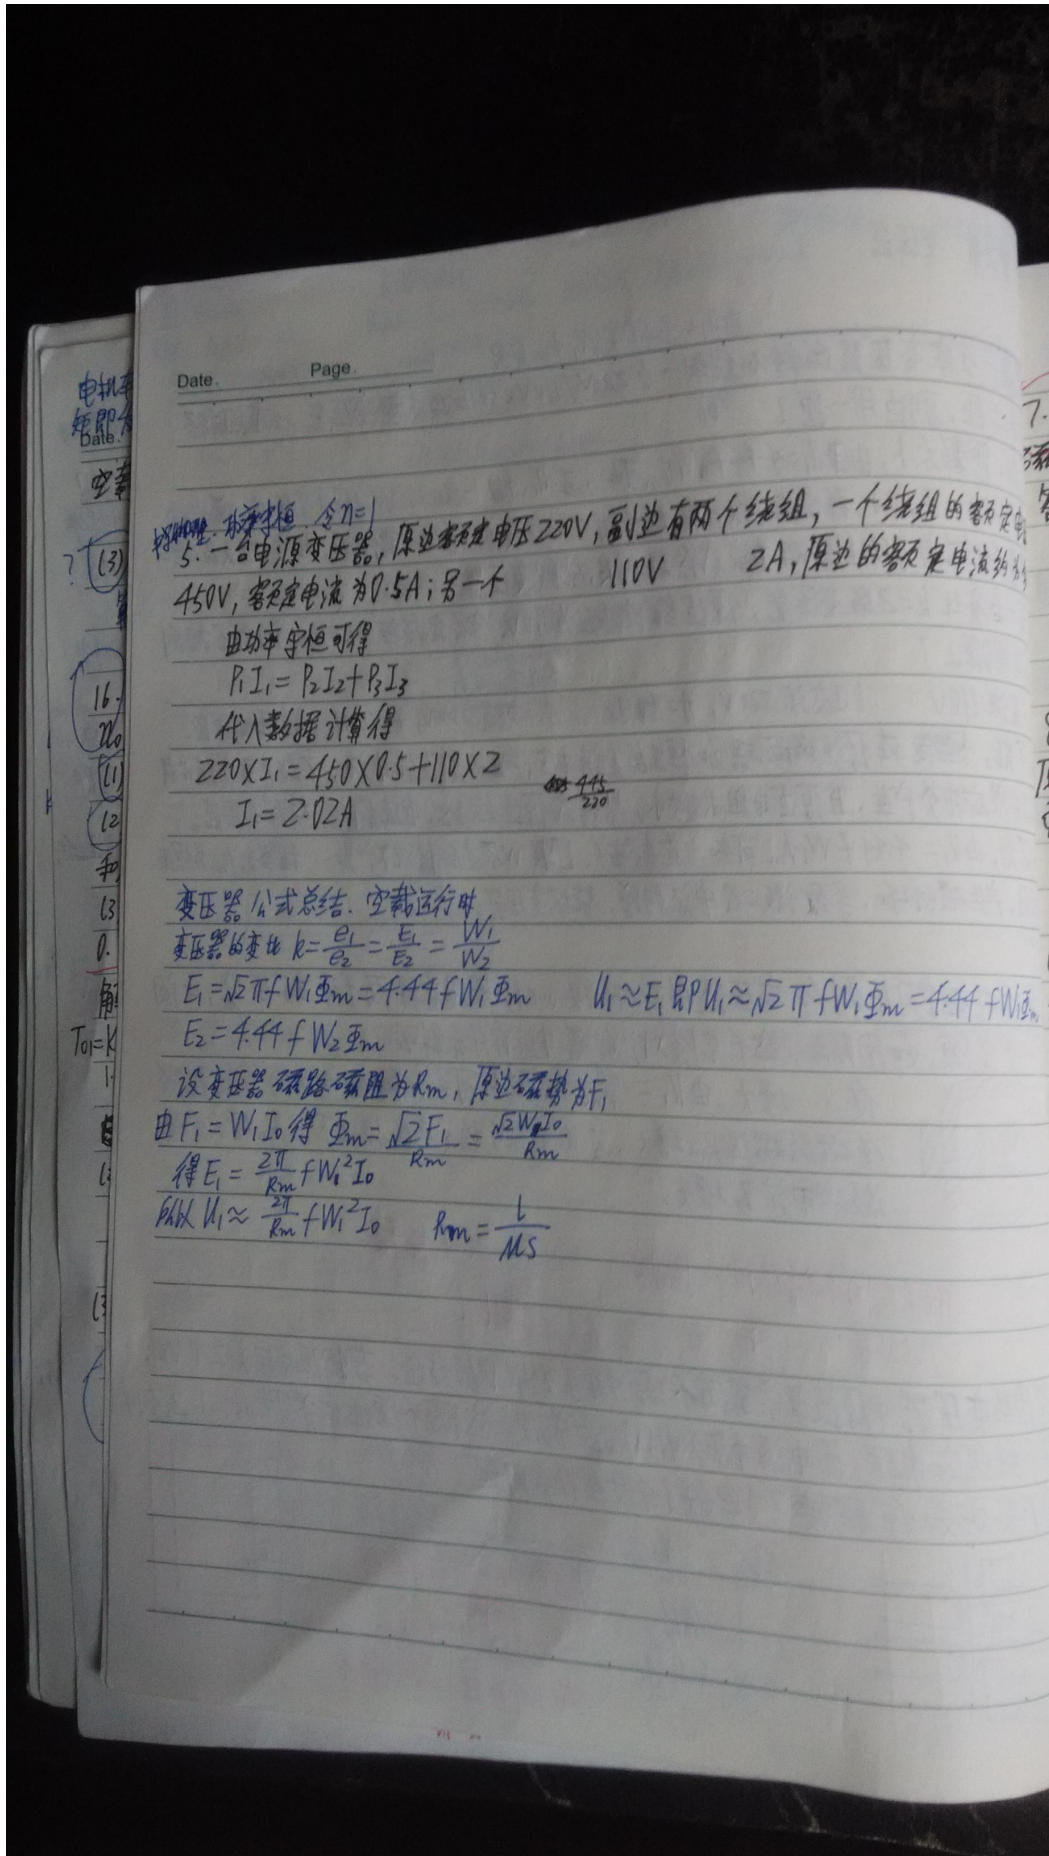 Date.
Page.
电机
矩即
Date.
空载
? (3)
16.
(1)
(2
和
(3
0.
解
T01=K
1.
(3
7.
功率守恒. 令η=1
5. 一台电源变压器, 原边额定电压220V, 副边有两个绕组, 一个绕组的额定电
450V, 额定电流为0.5A; 另一个 110V 2A, 原边的额定电流约为
由功率守恒可得
P₁I₁=P₂I₂+P₃I₃
代入数据计算得
220×I₁=450×0.5+110×2
445/220
I₁=2.02A
变压器公式总结. 空载运行时
变压器的变比 k=e₁/e₂=E₁/E₂=W₁/W₂
E₁=√2πfW₁Φm=4.44fW₁Φm U₁≈E₁即U₁≈√2πfW₁Φm=4.44fW₁Φm
E₂=4.44fW₂Φm
设变压器磁路磁阻为Rm, 原边磁势为F₁
由F₁=W₁I₀得 Φm=√2F₁/Rm=√2W₁I₀/Rm
得E₁=2π/Rm fW₁²I₀
所以U₁≈2π/Rm fW₁²I₀ Rm=l/μS